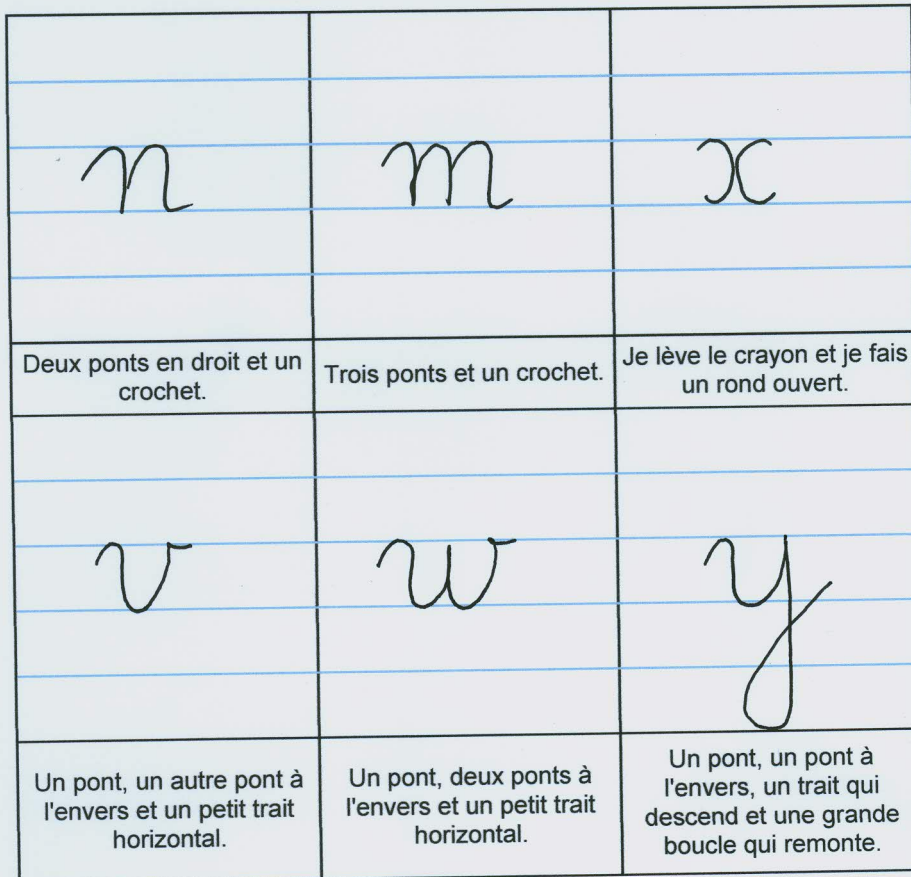 n
m
x
Deux ponts en droit et un
crochet.
Trois ponts et un crochet.
Je lève le crayon et je fais
un rond ouvert.
v
w
y
Un pont, un autre pont à
l'envers et un petit trait
horizontal.
Un pont, deux ponts à
l'envers et un petit trait
horizontal.
Un pont, un pont à
l'envers, un trait qui
descend et une grande
boucle qui remonte.